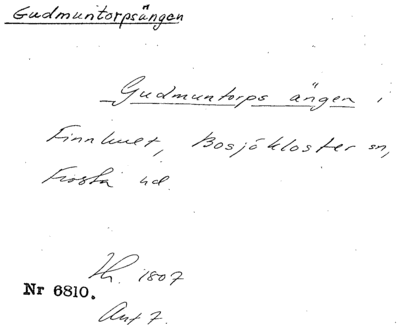 Gudmuntorpsängen
Gudmuntorps ängen i
Finnhult, Bosjökloster sn,
Frosta hd.
Lh. 1807
Nr 6810.
Akt 7.